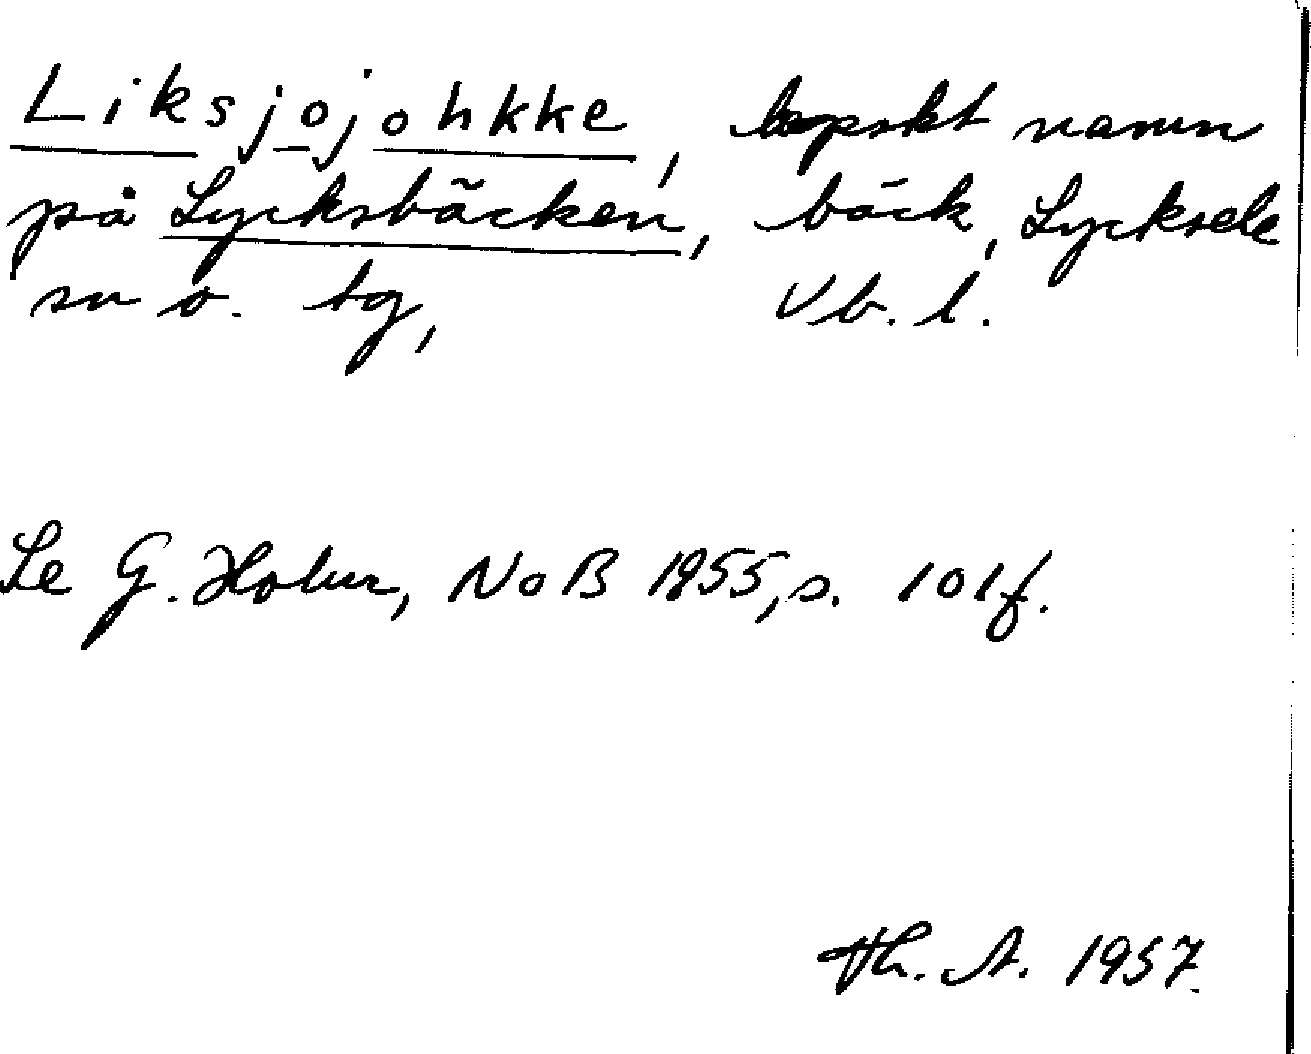 Liksjojohkke, lapskt namn
på Lycksbäcken, bäck, Lycksele
sn o. tg, Vb. l.
Se G. Holm, NoB 1955, s. 101 f.
Th. A. 1957.